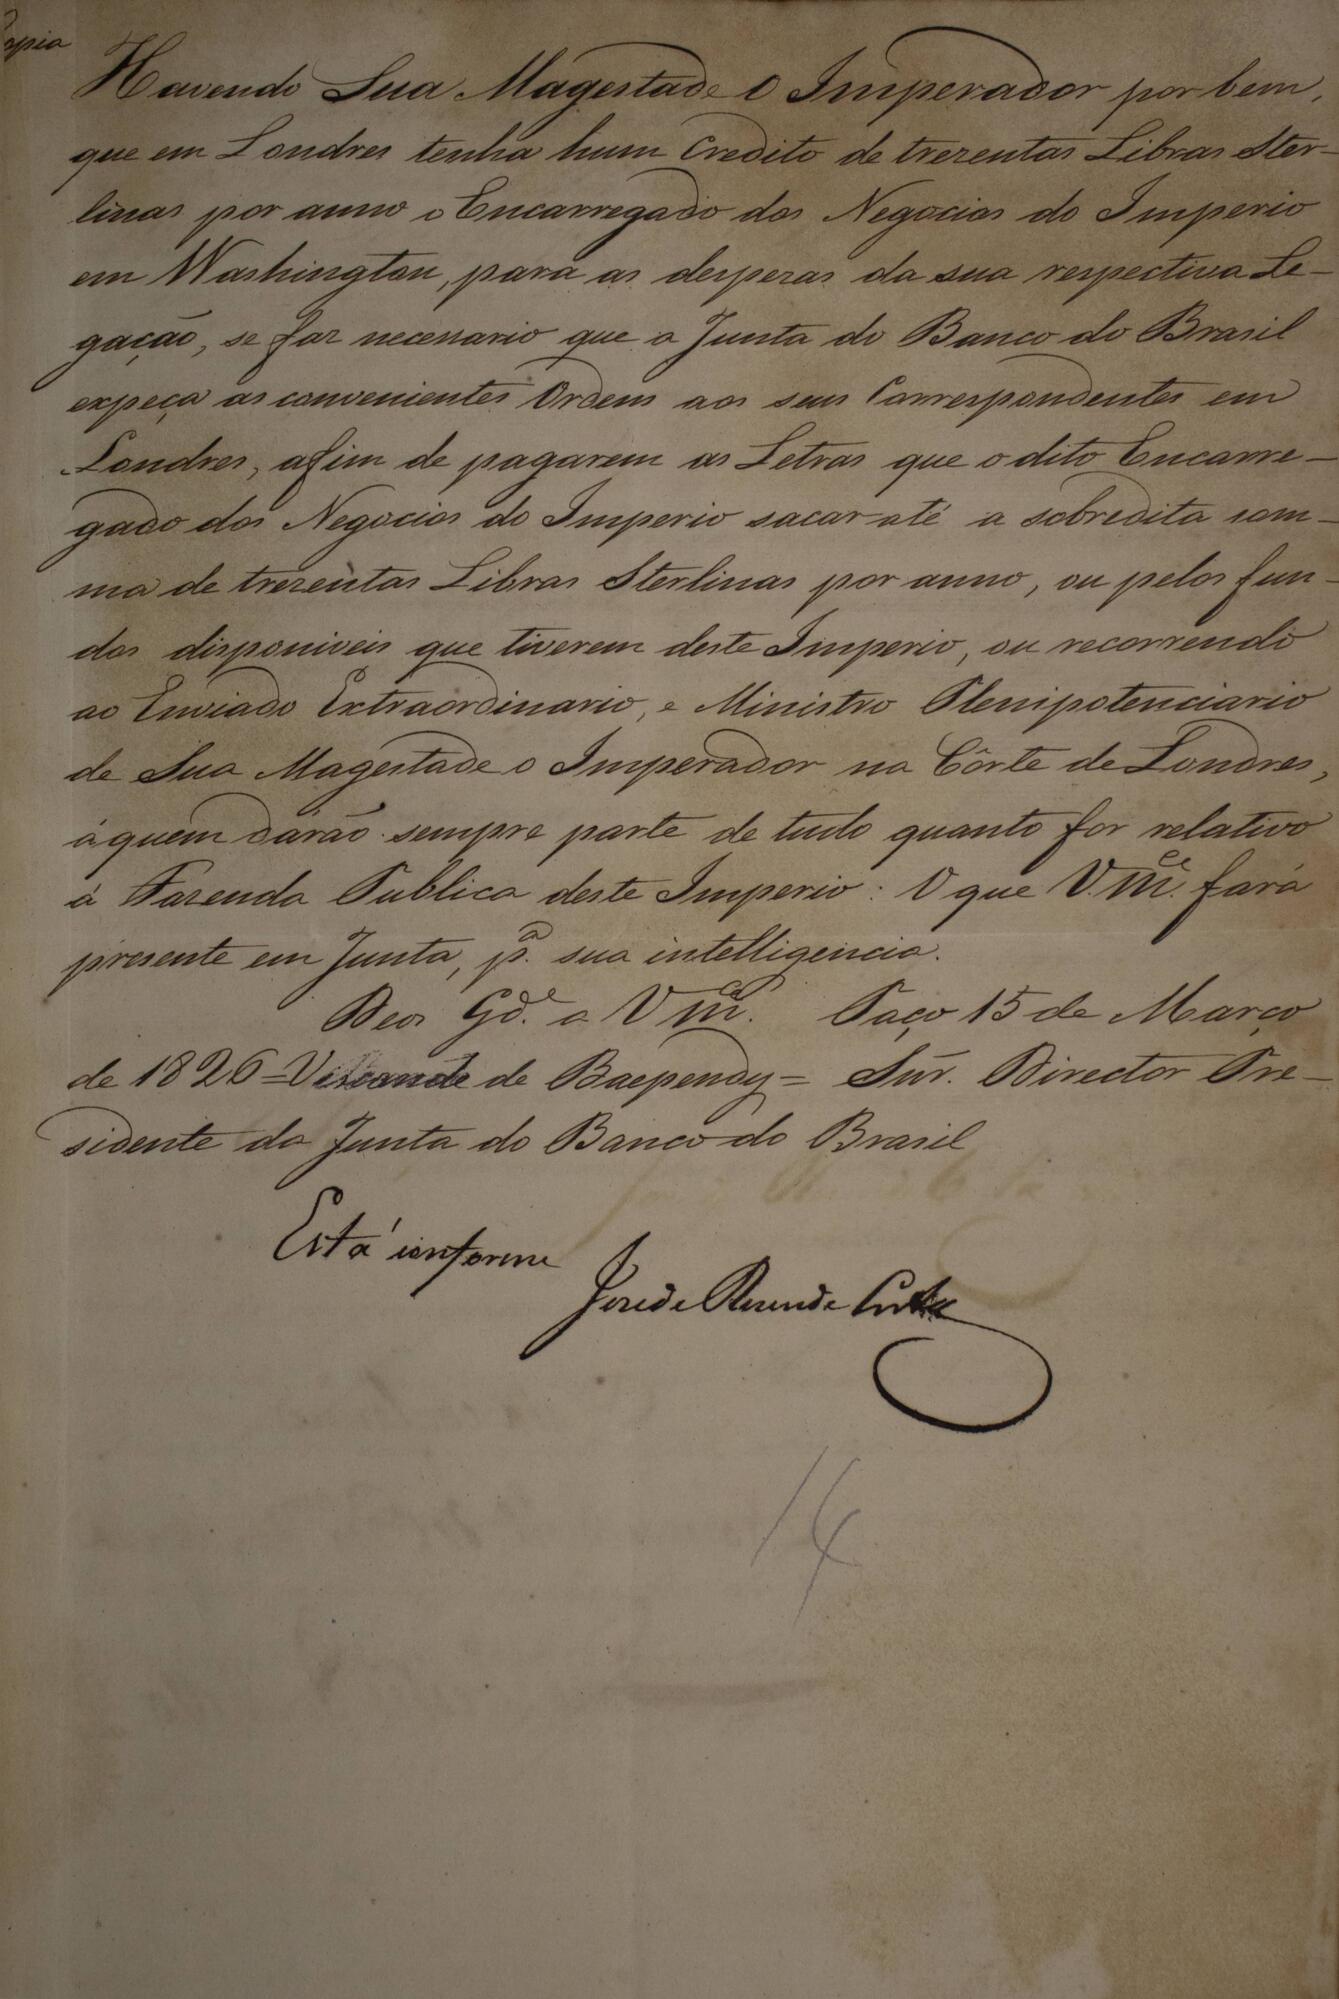 Copia
Havendo Sua Magestade O Imperador por bem,
que em Londres tenha hum Credito de trezentas Libras Ster-
linas por anno o Encarregado dos Negocios do Imperio
em Washington, para as despezas da sua respectiva Le-
gação, se faz necessario que a Junta do Banco do Brasil
expeça as convenientes Ordens aos seus Correspondentes em
Londres, afim de pagarem as Letras que o dito Encarre-
gado dos Negocios do Imperio sacar até a sobredita som-
ma de trezentas Libras Sterlinas por anno, ou pelos fun-
dos disponiveis que tiverem deste Imperio, ou recorrendo
ao Enviado Extraordinario, e Ministro Plenipotenciario
de Sua Magestade o Imperador na Côrte de Londres,
á quem darão sempre parte de tudo quanto for relativo
á Fazenda Publica deste Imperio: O que V. M.ce fará
presente em Junta, p.a sua intelligencia.
Deos G.de a V M.ce Paço 15 de Março
de 1826 = Visconde de Baependy = Snr. Director Pre-
sidente da Junta do Banco do Brasil
Está conforme
José de Resende Costa
14